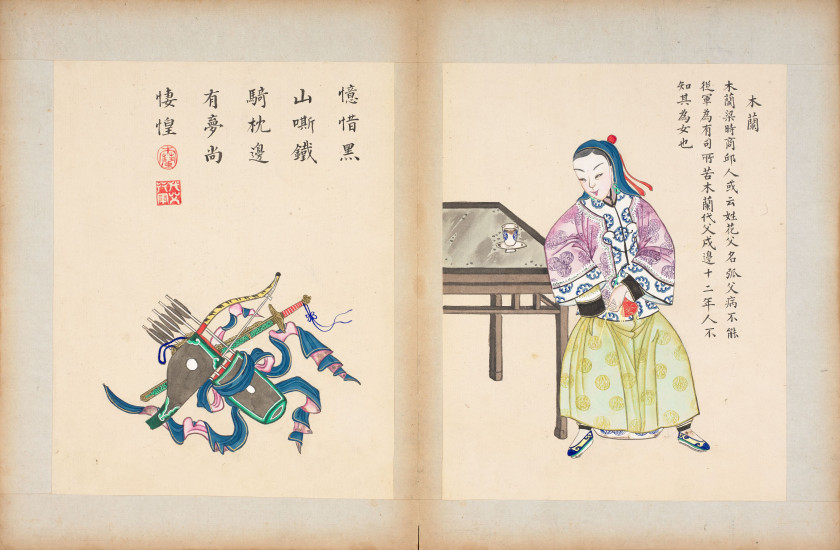 木蘭
木蘭梁時商邱人或云姓花父名弧父病不能
從軍為有司所苦木蘭代父戍邊十二年人不
知其為女也
憶惜黑
山嘶鐵
騎枕邊
有夢尚
悽惶